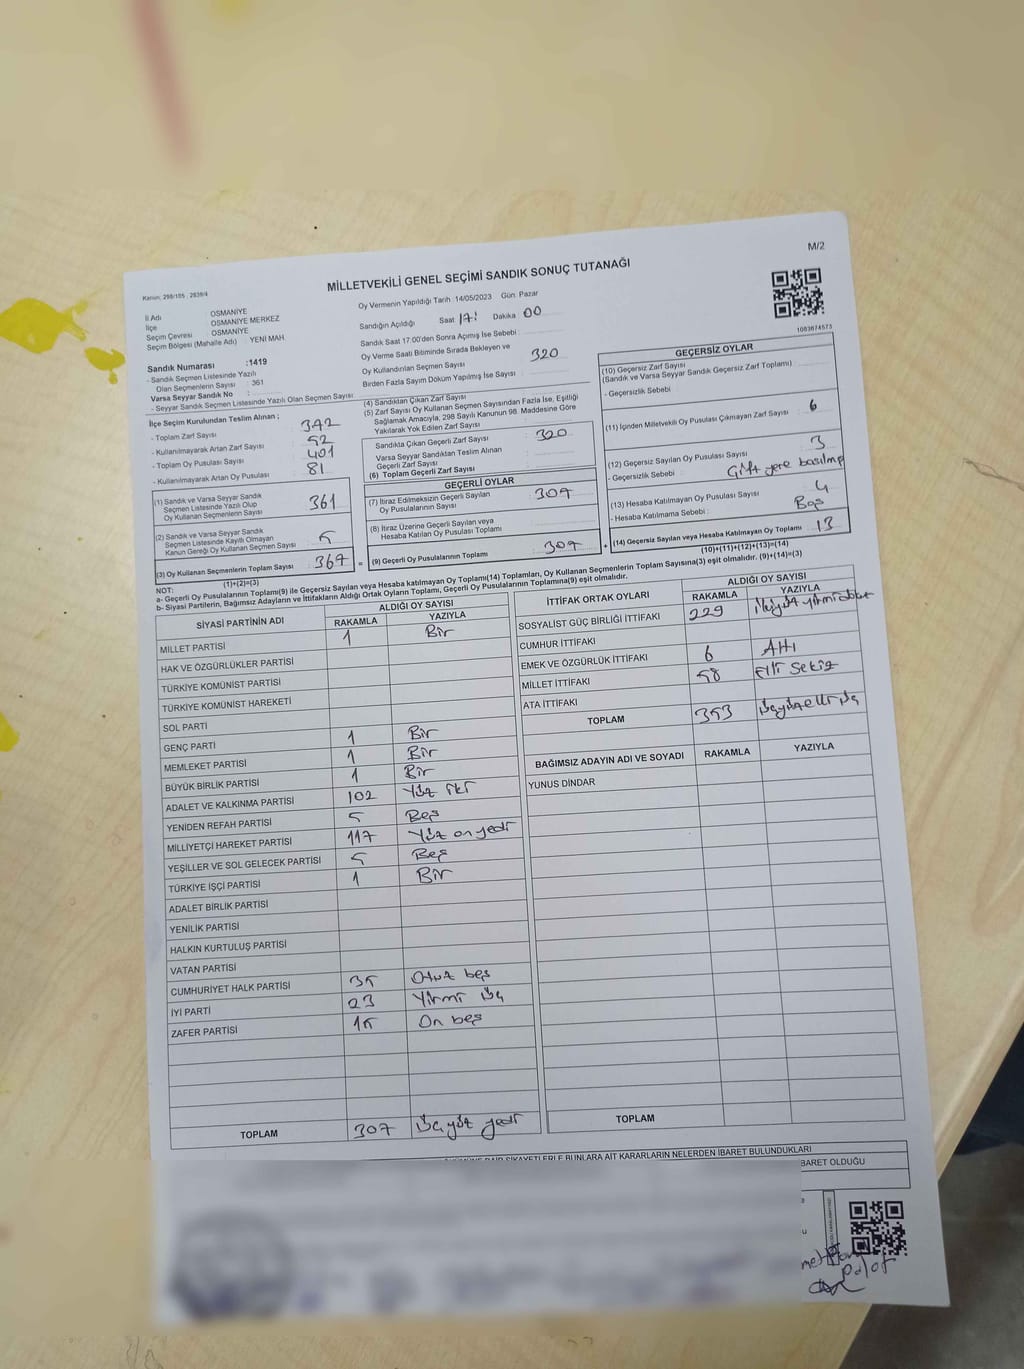 M/2
Kanun; 298/105 , 2839/4
MİLLETVEKİLİ GENEL SEÇİMİ SANDIK SONUÇ TUTANAĞI
İl Adı : OSMANİYE
İlçe : OSMANİYE MERKEZ
Seçim Çevresi : OSMANİYE
Seçim Bölgesi (Mahalle Adı) : YENİ MAH
Sandık Numarası :1419
- Sandık Seçmen Listesinde Yazılı
Olan Seçmenlerin Sayısı : 361
Varsa Seyyar Sandık No :
- Seyyar Sandık Seçmen Listesinde Yazılı Olan Seçmen Sayısı
Oy Vermenin Yapıldığı Tarih 14/05/2023 Gün: Pazar
Sandığın Açıldığı Saat 17: Dakika 00
Sandık Saat 17:00'den Sonra Açımış İse Sebebi :
Oy Verme Saati Bitiminde Sırada Bekleyen ve
Oy Kullandırılan Seçmen Sayısı : 320
Birden Fazla Sayım Döküm Yapılmış İse Sayısı :
1083674573
İlçe Seçim Kurulundan Teslim Alınan ;
- Toplam Zarf Sayısı 342
- Kullanılmayarak Artan Zarf Sayısı 52
- Toplam Oy Pusulası Sayısı 401
- Kullanılmayarak Artan Oy Pusulası 81
(1) Sandık ve Varsa Seyyar Sandık
Seçmen Listesinde Yazılı Olup
Oy Kullanan Seçmenlerin Sayısı 361
(2) Sandık ve Varsa Seyyar Sandık
Seçmen Listesinde Kayıtlı Olmayan
Kanun Gereği Oy Kullanan Seçmen Sayısı 5
(3) Oy Kullanan Seçmenlerin Toplam Sayısı 367 =
(1)+(2)=(3)
(4) Sandıktan Çıkan Zarf Sayısı
(5) Zarf Sayısı Oy Kullanan Seçmen Sayısından Fazla İse, Eşitliği
Sağlamak Amacıyla, 298 Sayılı Kanunun 98. Maddesine Göre
Yakılarak Yok Edilen Zarf Sayısı
Sandıkta Çıkan Geçerli Zarf Sayısı 320
Varsa Seyyar Sandıktan Teslim Alınan
Geçerli Zarf Sayısı
(6) Toplam Geçerli Zarf Sayısı
GEÇERLİ OYLAR
(7) İtiraz Edilmeksizin Geçerli Sayılan
Oy Pusulalarının Sayısı 307
(8) İtiraz Üzerine Geçerli Sayılan veya
Hesaba Katılan Oy Pusulası Toplamı
(9) Geçerli Oy Pusulalarının Toplamı 307 +
GEÇERSİZ OYLAR
(10) Geçersiz Zarf Sayısı
(Sandık ve Varsa Seyyar Sandık Geçersiz Zarf Toplamı)
- Geçersizlik Sebebi
(11) İçinden Milletvekili Oy Pusulası Çıkmayan Zarf Sayısı : 6
(12) Geçersiz Sayılan Oy Pusulası Sayısı 3
- Geçersizlik Sebebi : Çift yere basılmış
(13) Hesaba Katılmayan Oy Pusulası Sayısı 4
- Hesaba Katılmama Sebebi : Boş
(14) Geçersiz Sayılan veya Hesaba Katılmayan Oy Toplamı 13
(10)+(11)+(12)+(13)=(14)
NOT:
a- Geçerli Oy Pusulalarının Toplamı(9) ile Geçersiz Sayılan veya Hesaba katılmayan Oy Toplamı(14) Toplamları, Oy Kullanan Seçmenlerin Toplam Sayısına(3) eşit olmalıdır. (9)+(14)=(3)
b- Siyasi Partilerin, Bağımsız Adayların ve İttifakların Aldığı Ortak Oyların Toplamı, Geçerli Oy Pusulalarının Toplamına(9) eşit olmalıdır.
SİYASİ PARTİNİN ADI ALDIĞI OY SAYISI
RAKAMLA YAZIYLA
MİLLET PARTİSİ 1 Bir
HAK VE ÖZGÜRLÜKLER PARTİSİ
TÜRKİYE KOMÜNİST PARTİSİ
TÜRKİYE KOMÜNİST HAREKETİ
SOL PARTİ
GENÇ PARTİ 1 Bir
MEMLEKET PARTİSİ 1 Bir
BÜYÜK BİRLİK PARTİSİ 1 Bir
ADALET VE KALKINMA PARTİSİ 102 Yüz iki
YENİDEN REFAH PARTİSİ 5 Beş
MİLLİYETÇİ HAREKET PARTİSİ 117 Yüz on yedi
YEŞİLLER VE SOL GELECEK PARTİSİ 5 Beş
TÜRKİYE İŞÇİ PARTİSİ 1 Bir
ADALET BİRLİK PARTİSİ
YENİLİK PARTİSİ
HALKIN KURTULUŞ PARTİSİ
VATAN PARTİSİ
CUMHURİYET HALK PARTİSİ 35 Otuz beş
İYİ PARTİ 23 Yirmi üç
ZAFER PARTİSİ 15 On beş
TOPLAM 307 Üçyüz yedi
İTTİFAK ORTAK OYLARI ALDIĞI OY SAYISI
RAKAMLA YAZIYLA
SOSYALİST GÜÇ BİRLİĞİ İTTİFAKI 229
CUMHUR İTTİFAKI
EMEK VE ÖZGÜRLÜK İTTİFAKI 6 Altı
MİLLET İTTİFAKI 58 Elli Sekiz
ATA İTTİFAKI
TOPLAM 353 Üçyüzelli üç
BAĞIMSIZ ADAYIN ADI VE SOYADI RAKAMLA YAZIYLA
YUNUS DİNDAR
TOPLAM
ŞİKAYETLERLE BUNLARA AİT KARARLARIN NELERDEN İBARET BULUNDUKLARI
BARET OLDUĞU